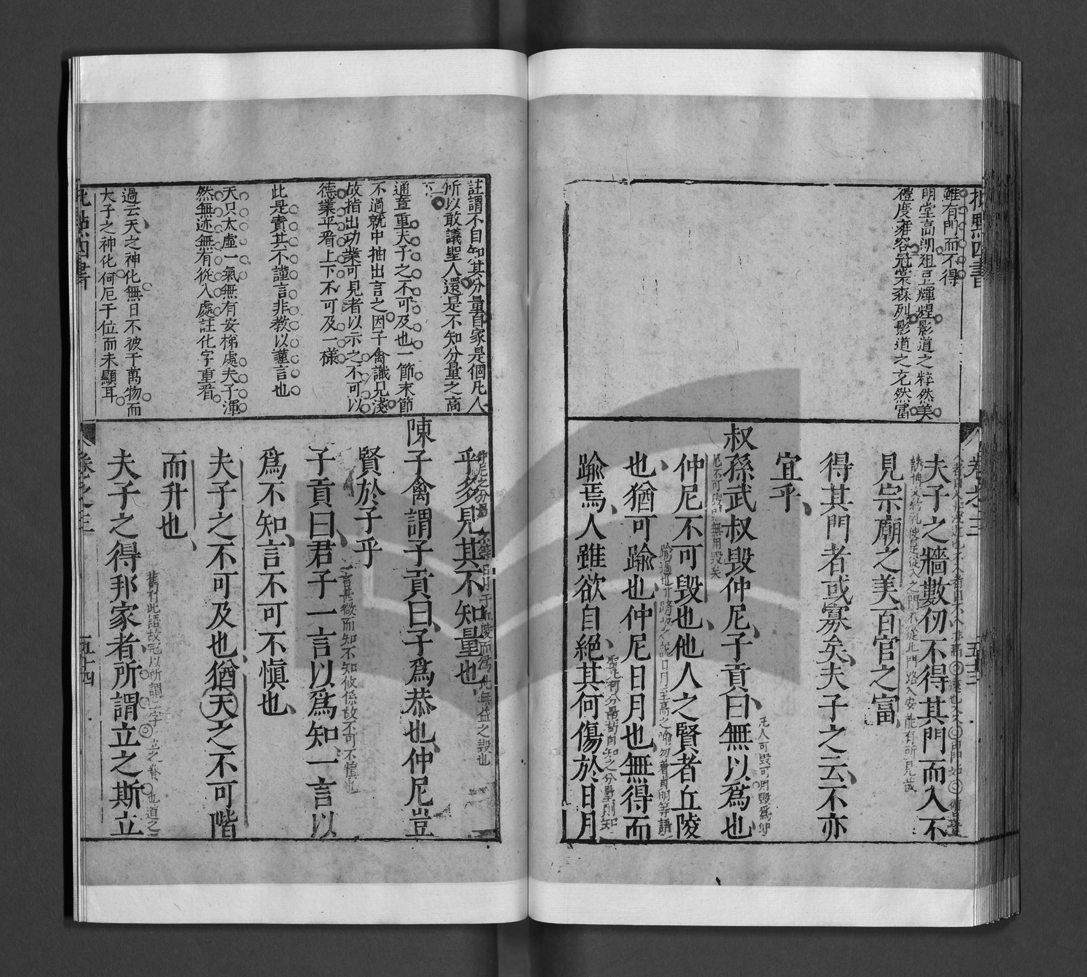 批點四書
卷之三
五十三
雖有門而不得
明堂高閎俎豆輝煌影道之粹然美
禮度雍容冠裳森列影道之充然富
夫子之牆數仞不得其門而入不
見宗廟之美百官之富
得其門者或寡矣夫子之云不亦
宜乎
叔孫武叔毀仲尼子貢曰無以為也
凡人可毀可謂毀為仲
尼不可毀謂無用毀矣
仲尼不可毀也他人之賢者丘陵
也猶可踰也仲尼日月也無得而
踰焉人雖欲自絕其何傷於日月
註謂不自知其分量自家是個凡人
所以敢議聖人還是不知分量之高
下
通章重夫子之不可及也一節末節
不過就中抽出言之因子禽識見淺
故指出功業可見者以示之不可以
德業平看上下不可及一樣
此是責其不謹言非教以謹言也
天只太虛一氣無有安梯處夫子渾
然無迹無有從入處註化字重看
過云天之神化無日不被于萬物而
夫子之神化何厄于位而未顯耳
乎多見其不知量也
陳子禽謂子貢曰子為恭也仲尼豈
賢於子乎
子貢曰君子一言以為知一言以
一言甚微而知不知攸係故不可不慎也
為不知言不可不慎也
夫子之不可及也猶天之不可階
而升也
夫子之得邦家者所謂立之斯立
批點四書
卷之三
五十四